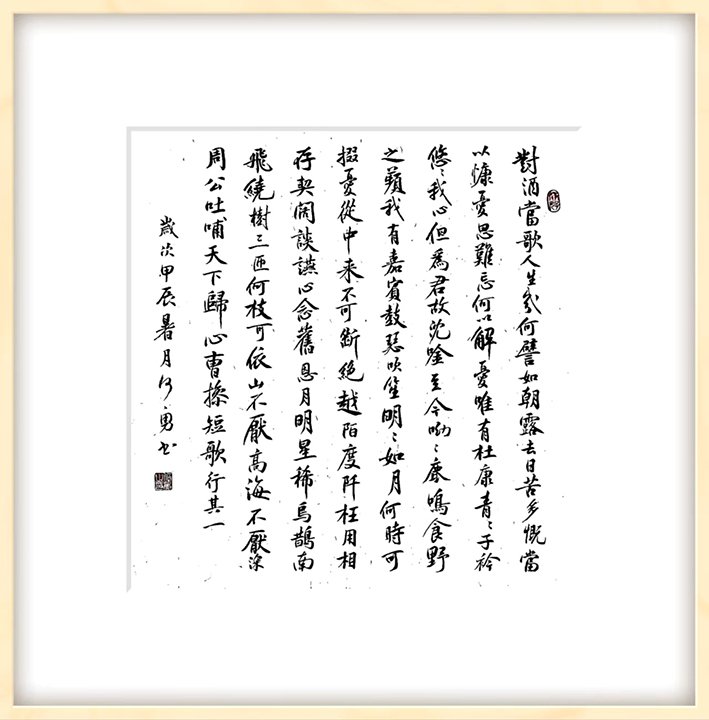 對酒當歌人生幾何譬如朝露去日苦多慨當
以慷憂思難忘何以解憂唯有杜康青〻子衿
悠〻我心但爲君故沈唫至今呦〻鹿鳴食野
之蘋我有嘉賓鼓瑟吹笙明〻如月何時可
掇憂從中来不可斷絕越陌度阡枉用相
存契闊談讌心念舊恩月明星稀烏鵲南
飛繞樹三匝何枝可依山不厭高海不厭深
周公吐哺天下歸心曹操短歌行其一
歲次甲辰暑月何勇书